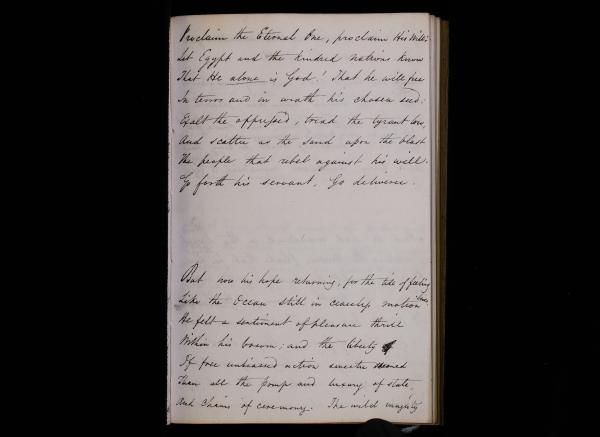 Proclaim the Eternal One, proclaim His Will:
Let Egypt and the kindred nations know
That He alone is God! That he will free
In terror and in wrath his chosen seed:
Exalt the oppressed, tread the tyrant low,
And scatter as the sand upon the blast
The people that rebel against his will.
Go forth his servant. Go deliverer.
But now his hope returning, for the tide of feeling
Like the Ocean still in ceaseless motion
He felt a sentiment of pleasure thrill
Within his bosom; and the liberty
Of free unbiassed action sweeter seemed
Than all the pomp and luxury of state,
And chains of ceremony. The wild majesty